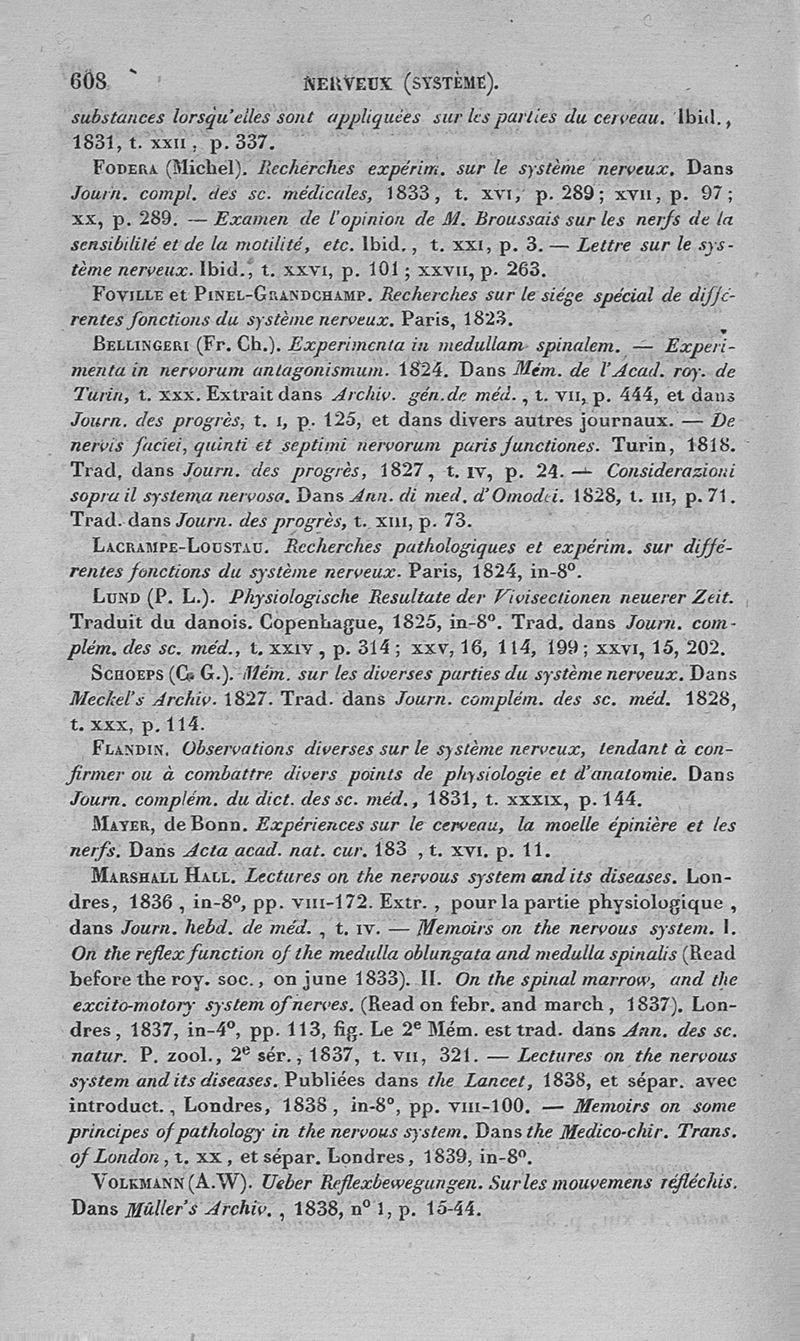 608 NERVEUX (SYSTÈME).
substances lorsqu'elles sont appliquées sur les parties du cerveau. Ibid.,
1831, t. XXII, p. 337.
FODERA (Michel). Recherches expérim. sur le système nerveux. Dans
Journ. compl. des sc. médicales, 1833, t. XVI, p. 289; XVII, p. 97;
XX, p. 289. — Examen de l'opinion de M. Broussais sur les nerfs de la
sensibilité et de la motilité, etc. Ibid., t. XXI, p. 3. — Lettre sur le sys-
tème nerveux. Ibid., t. XXVI, p. 101; XXVII, p. 263.
FOVILLE et PINEL-GRANDCHAMP. Recherches sur le siége spécial de diffé-
rentes fonctions du système nerveux. Paris, 1823.
BELLINGERI (Fr. Ch.). Experimenta in medullam spinalem. — Experi-
menta in nervorum antagonismum. 1824. Dans Mém. de l'Acad. roy. de
Turin, t. XXX. Extrait dans Archiv. gén. de méd., t. VII, p. 444, et dans
Journ. des progrès, t. I, p. 125, et dans divers autres journaux. — De
nervis faciei, quinti et septimi nervorum paris functiones. Turin, 1818.
Trad. dans Journ. des progrès, 1827, t. IV, p. 24. — Considerazioni
sopra il systema nervosa. Dans Ann. di med. d'Omodei. 1828, t. III, p. 71.
Trad. dans Journ. des progrès, t. XIII, p. 73.
LACRAMPE-LOUSTAU. Recherches pathologiques et expérim. sur diffé-
rentes fonctions du système nerveux. Paris, 1824, in-8°.
LUND (P. L.). Physiologische Resultate der Vivisectionen neuerer Zeit.
Traduit du danois. Copenhague, 1825, in-8°. Trad. dans Journ. com-
plém. des sc. méd., t. XXIV, p. 314; XXV, 16, 114, 199; XXVI, 15, 202.
SCHOEPS (C. G.). Mém. sur les diverses parties du système nerveux. Dans
Meckel's Archiv. 1827. Trad. dans Journ. complém. des sc. méd. 1828,
t. XXX, p. 114.
FLANDIN. Observations diverses sur le système nerveux, tendant à con-
firmer ou à combattre divers points de physiologie et d'anatomie. Dans
Journ. complém. du dict. des sc. méd., 1831, t. XXXIX, p. 144.
MAYER, de Bonn. Expériences sur le cerveau, la moelle épinière et les
nerfs. Dans Acta acad. nat. cur. 183 , t. XVI. p. 11.
MARSHALL HALL. Lectures on the nervous system and its diseases. Lon-
dres, 1836, in-8°, pp. VIII-172. Extr., pour la partie physiologique,
dans Journ. hebd. de méd., t. IV. — Memoirs on the nervous system. I.
On the reflex function of the medulla oblungata and medulla spinalis (Read
before the roy. soc., on june 1833). II. On the spinal marrow, and the
excito-motory system of nerves. (Read on febr. and march, 1837). Lon-
dres, 1837, in-4°, pp. 113, fig. Le 2e Mém. est trad. dans Ann. des sc.
natur. P. zool., 2e sér., 1837, t. VII, 321. — Lectures on the nervous
system and its diseases. Publiées dans the Lancet, 1838, et sépar. avec
introduct., Londres, 1838, in-8°, pp. VIII-100. — Memoirs on some
principes of pathology in the nervous system. Dans the Medico-chir. Trans.
of London, t. XX, et sépar. Londres, 1839, in-8°.
VOLKMANN (A.W). Ueber Reflexbewegungen. Sur les mouvemens réfléchis.
Dans Müller's Archiv., 1838, n° 1, p. 15-44.